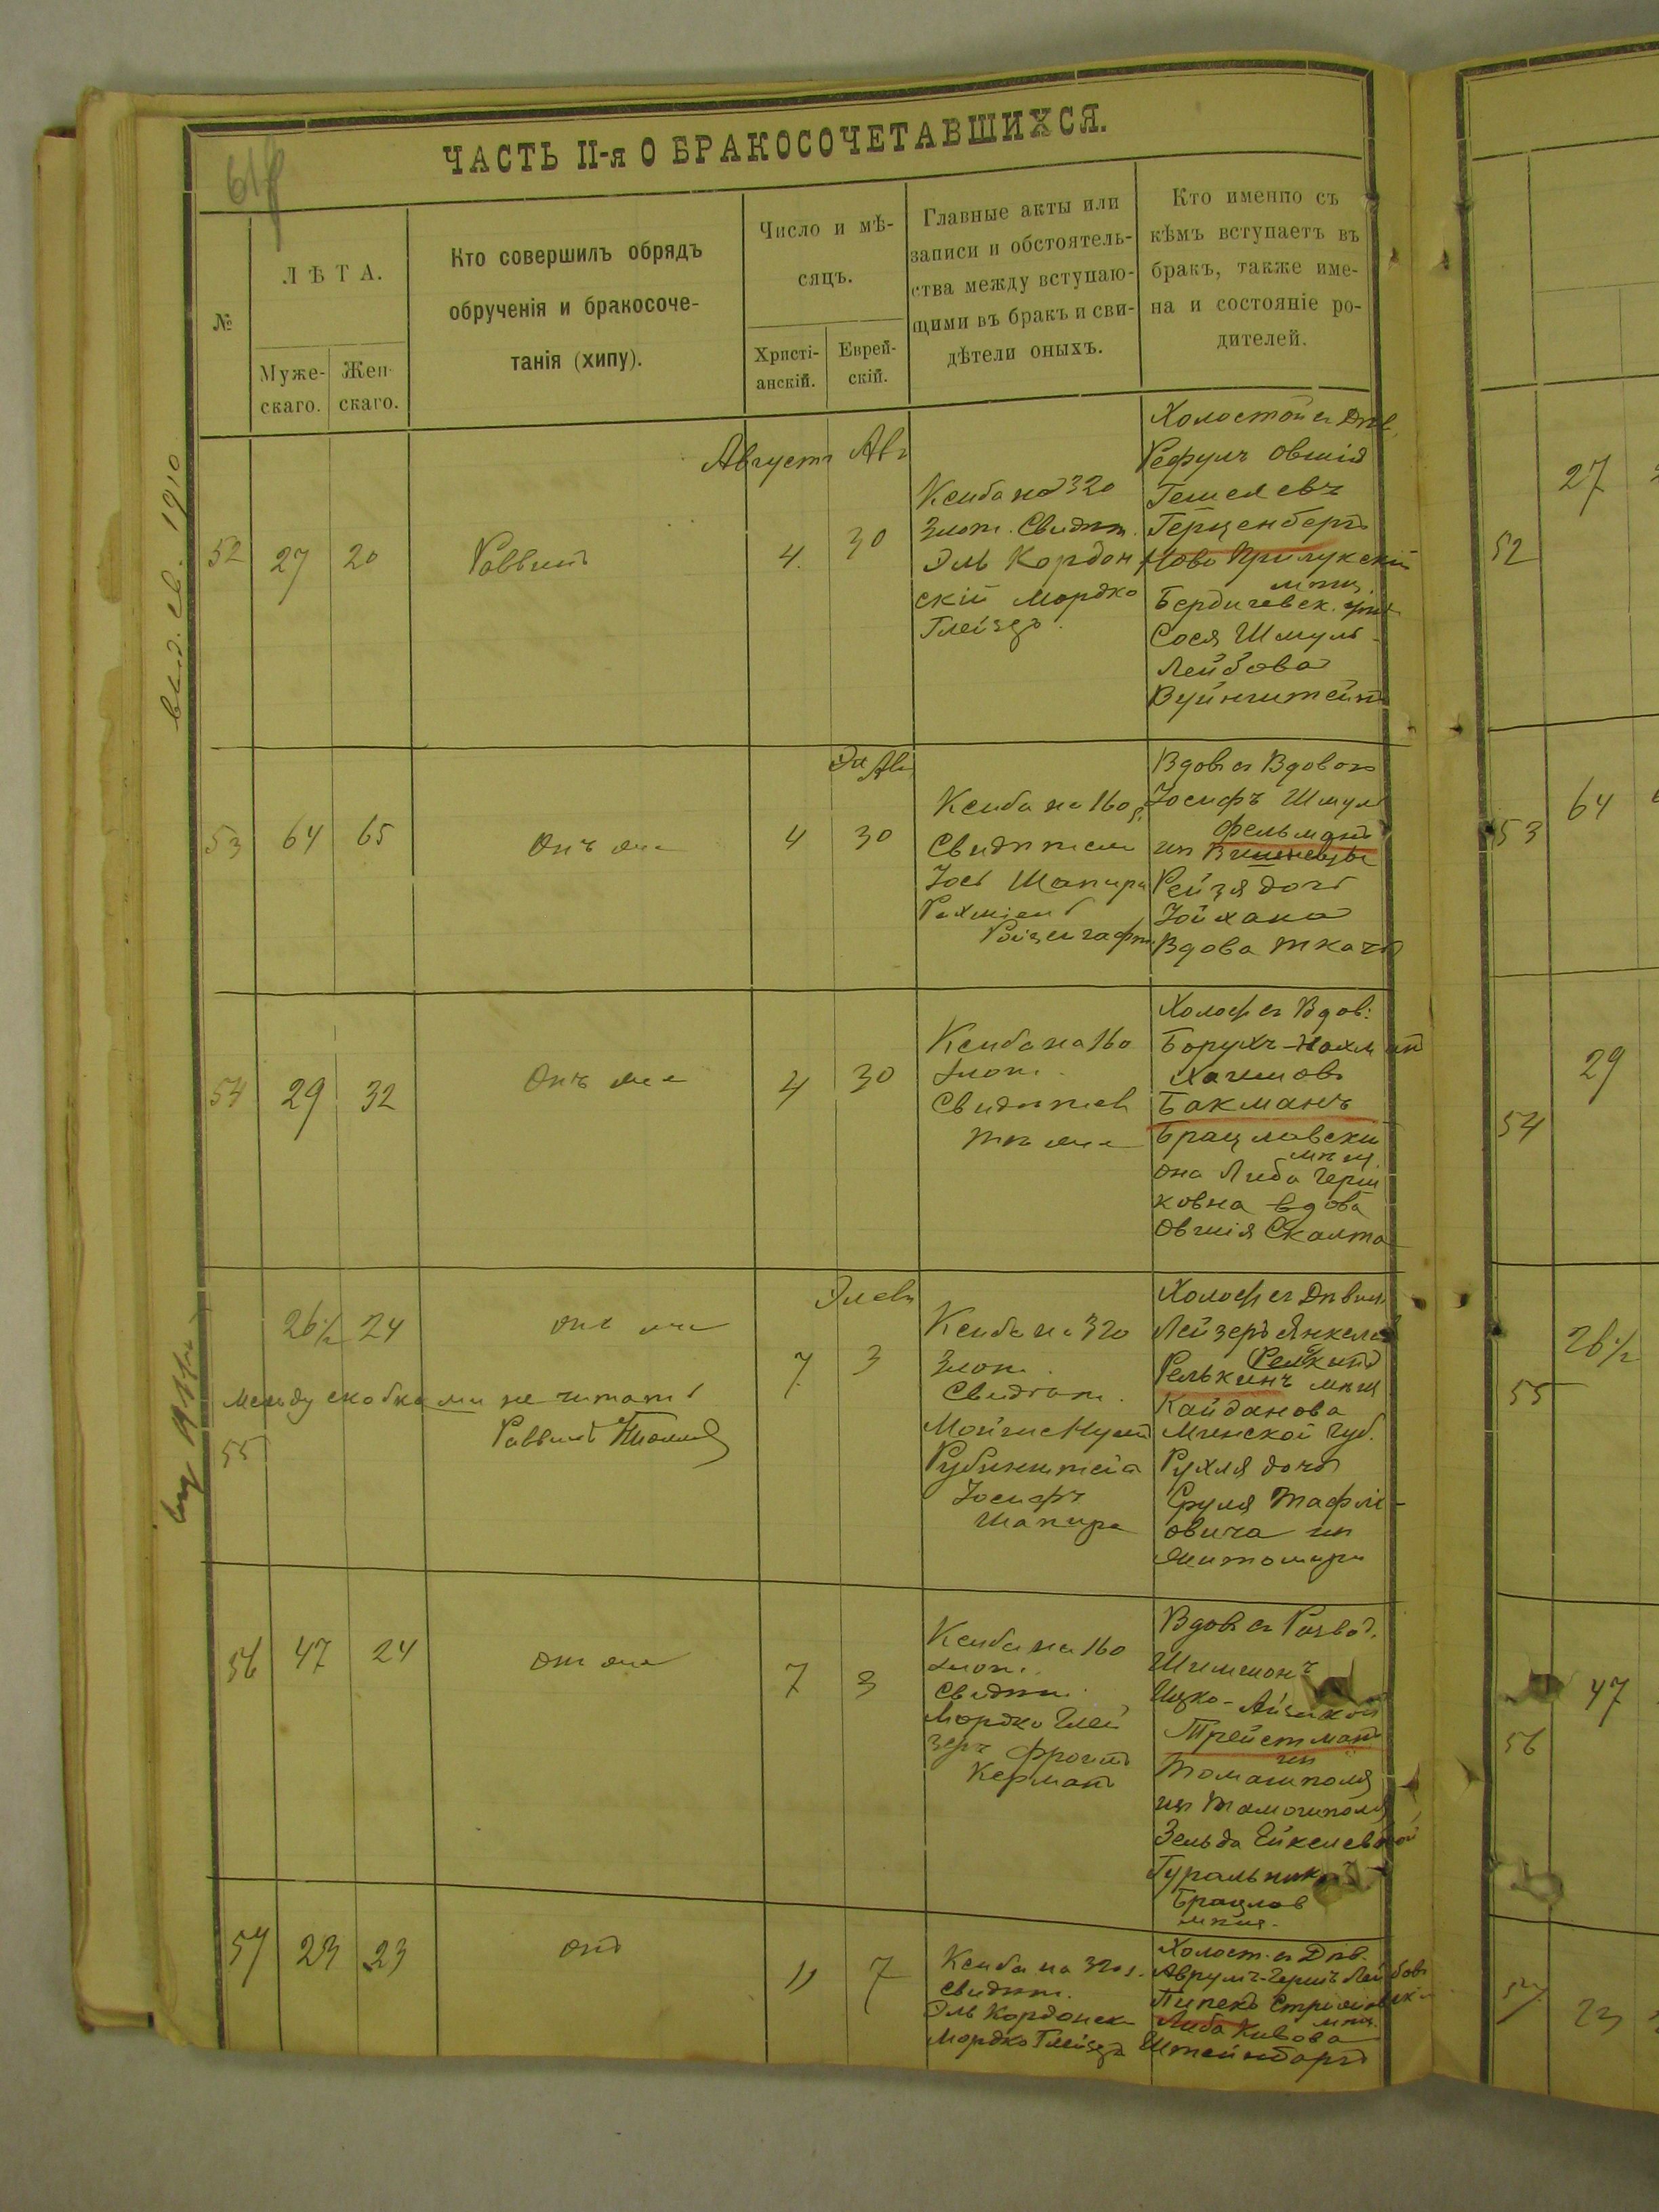 ЧАСТЬ II-я О БРАКОСОЧЕТАВШИХСЯ.
№
ЛѢТА.
Муже-
скаго.
Жен-
скаго.
Кто совершилъ обрядъ
обрученія и бракосоче-
танія (хипу).
Число и мѣ-
сяцъ.
Христі-
анскій.
Еврей-
скій.
Главные акты или
записи и обстоятель-
ства между вступаю-
щими въ бракъ и сви-
дѣтели оныхъ.
Кто именно съ
кѣмъ вступаетъ въ
бракъ, также име-
на и состояніе ро-
дителей.
выд. св. 1910
Августъ Авъ
52 27 20 Раввинъ 4. 30
Ксиба на 320
Злот. Свидѣт.
Эль Кордон
скій Мордко
Глейзеръ.
Холостой съ Дѣв.
Рефулъ Овшія
Гешелевъ
Герценбергъ
Ново Прилукскій
мѣщ.
Бердичевск. уѣз.
Сося Шмуль-
Лейбова
Вуйнштейнъ
53 64 65 Онъ же 4 30
Ксиба на 160 з.
Свидѣтели
Іось Шапиро
Рахміель
Вдов съ Вдовою
Іосифъ Шмул
Фельманъ
из Винницы
Рейзя дочь
Іойхана
Вдова Ткачъ
54 29 32 Онъ же 4 30
Ксиба на 160
злот.
Свидѣтел
тѣ же
Холост съ Вдов:
Борухъ-Нахман
Хаимовъ
Бакманъ
Брацлавскій
мѣщ.
она Либа Герш
ковна вдова
Овшія Скалта
Элевъ
26½ 24 Онъ же 7. 3
между скобками не читать
55 Раввинъ
Ксиба на 320
Злот.
Свидѣт.
Рубинштейн
Іосифъ
Шапиро
Холост съ Дѣвиц
Лейзеръ Янкеле
(Рейхинъ)
Релькинъ мѣщ
Кайданова
Минской губ.
Рухля дочь
Сруля Тафли-
овича из
Житомира
56 47 24 Онъ же 7 3
Ксиба на 160
злот.
Свидѣт.
Мордко Глей
зеръ Фроимъ
Керманъ
Вдов съ Развод.
Шимшонъ
Ицко-Айзиков
Трейстманъ
из
Томашполя
из Томашполя
Зельда Ейкелевой
Гуральник
Брацлов
мѣщ.
57 23 23 Онъ 11 7
Ксиба на 320 з.
Свидѣт.
Эль Кордонск
Мордко Глейзеръ
Холост. съ Дѣв.
Аврумъ-Гершъ Лейбовъ
Пипекъ
мѣщ.
Либа Кивова
Штейнбаргъ
52 27
53 64
54 29
55 26½
56 47
57 23